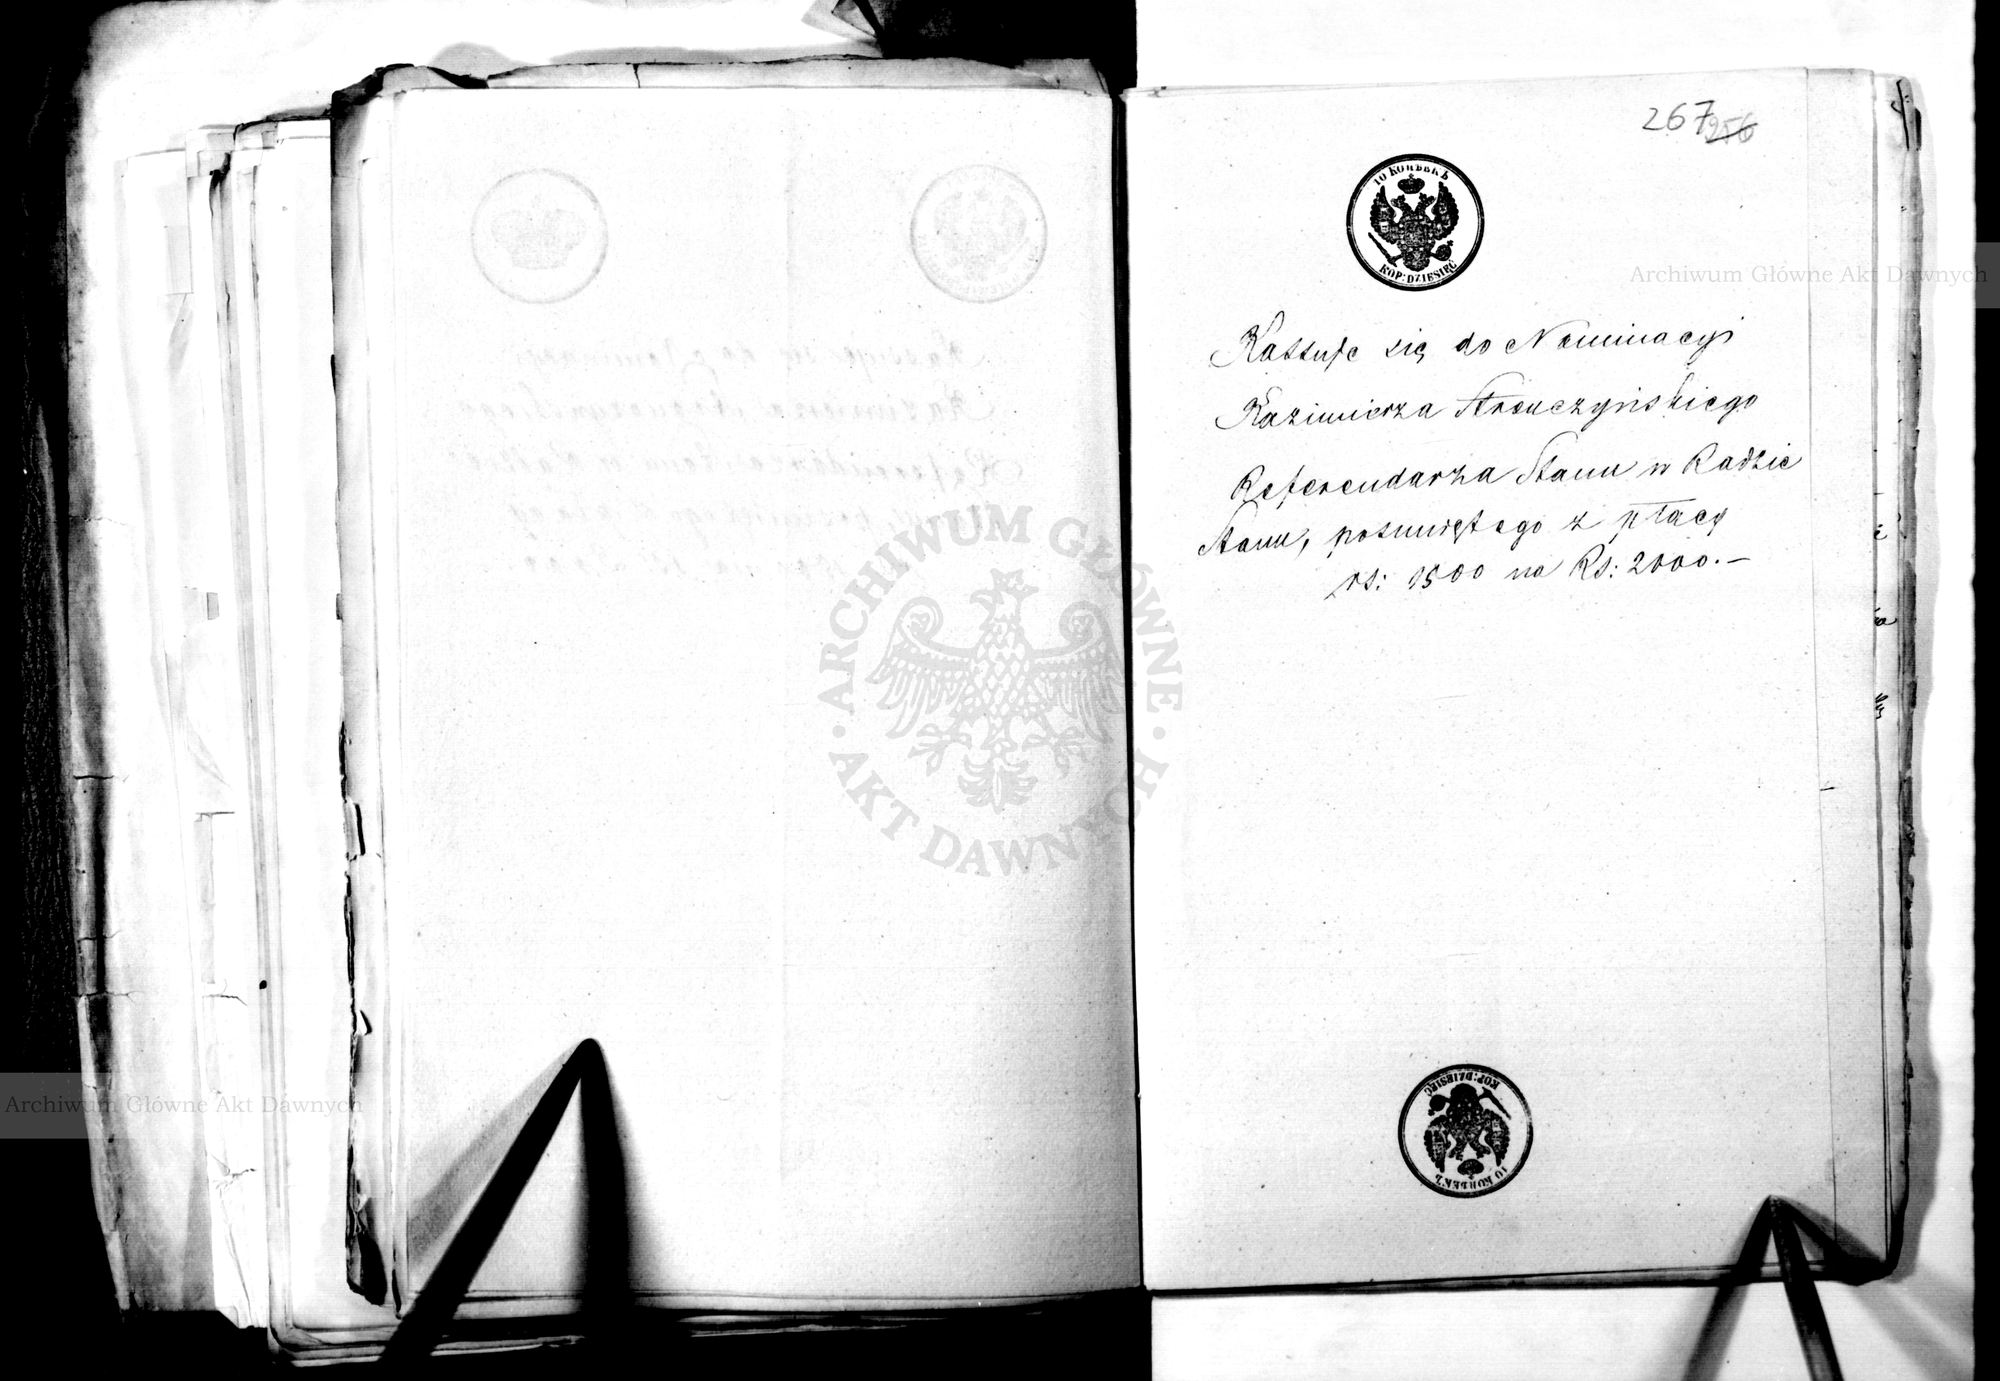 267 256
10 КОПѢЕКЪ
KOP: DZIESIĘĆ
Kassuje się do Nominacyi
Kazimierza Stronczyńskiego
Referendarza Stanu w Radzie
Stanu, posuniętego z płacy
rs: 1500 na Rs: 2000.—
KOP: DZIESIĘĆ
10 КОПѢЕКЪ
Archiwum Główne Akt Dawnych
Archiwum Główne Akt Dawnych
ARCHIWUM GŁÓWNE
AKT DAWNYCH